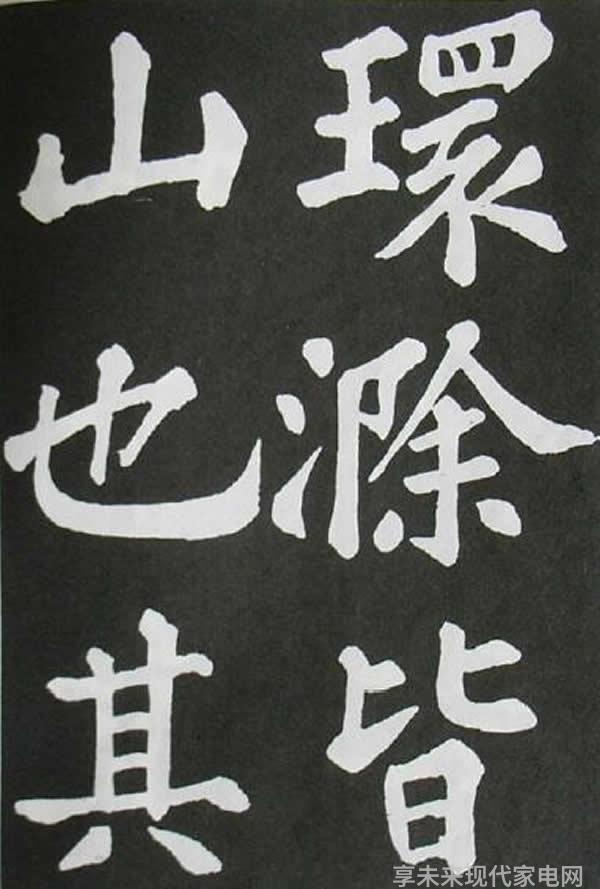 環滁皆
山也其
享未来现代家电网